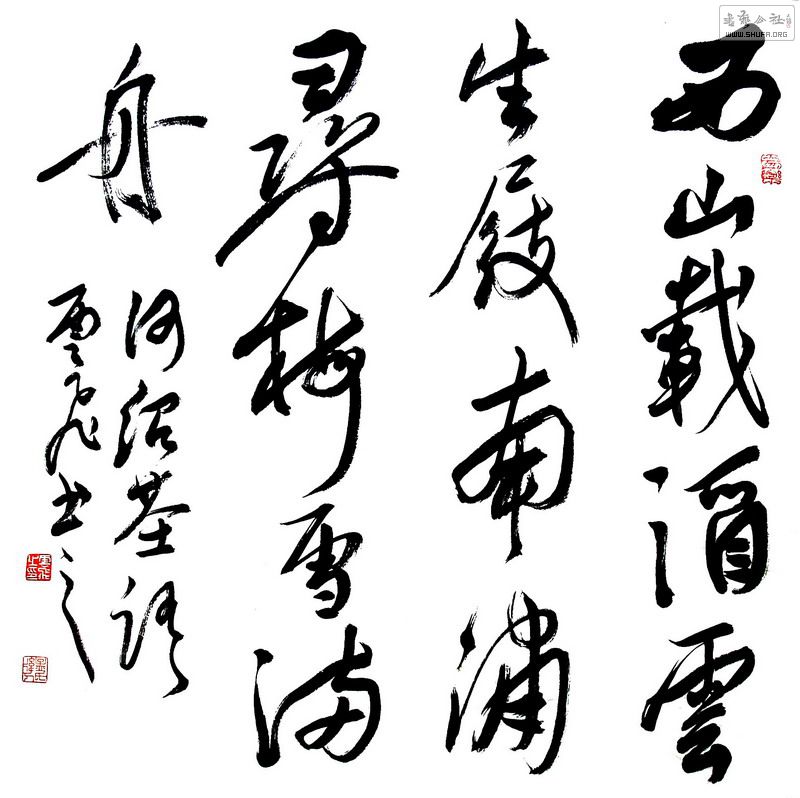 西山載酒雲
生屐南浦
尋梅雪滿
舟
何紹基語
雲飛書之
書法公社
WWW.SHUFA.ORG